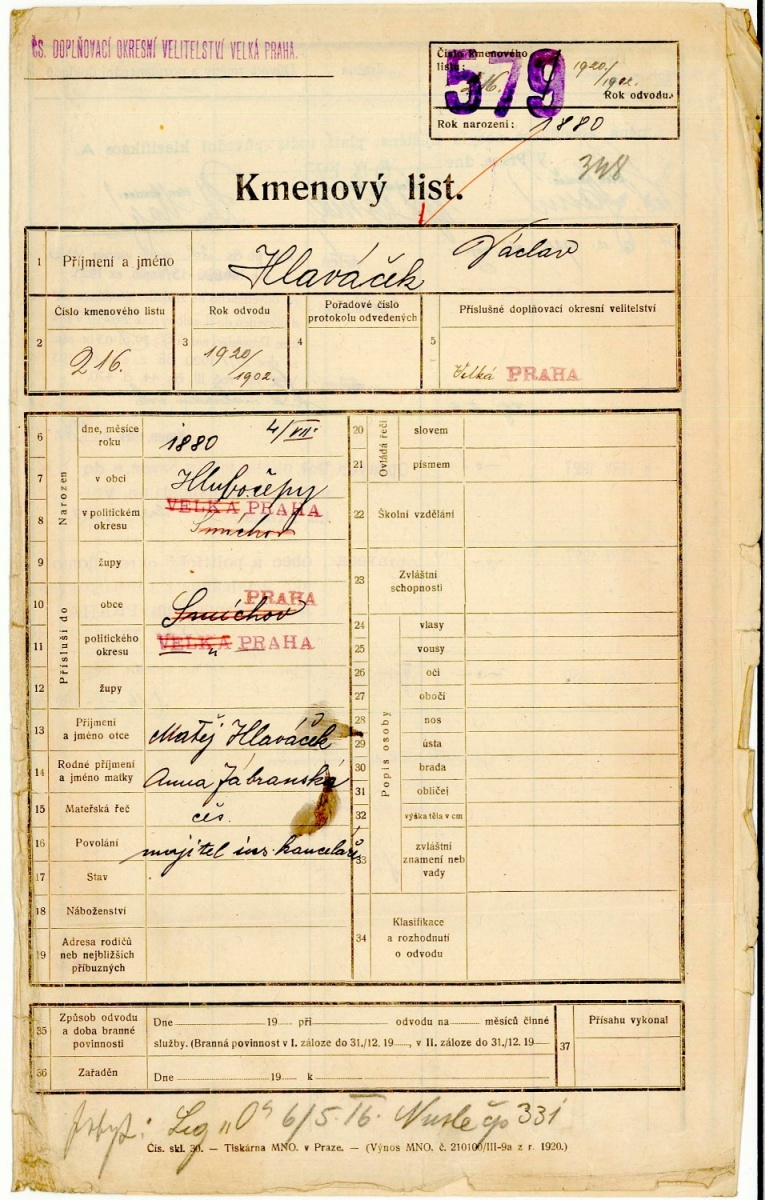 ČS. DOPLŇOVACÍ OKRESNÍ VELITELSTVÍ VELKÁ PRAHA.
Číslo kmenového
listu: 216. 1920/1902.
579
Rok odvodu.
Rok narození: 1880
348
Kmenový list.
1 Příjmení a jméno Hlaváček Václav
2 Číslo kmenového listu 216.
3 Rok odvodu 1920/1902.
4 Pořadové číslo protokolu odvedených
5 Příslušné doplňovací okresní velitelství Velká PRAHA
Narozen
6 dne, měsíce roku 1880 4/VII.
7 v obci Hlubočepy
8 v politickém okresu VELKÁ PRAHA Smíchov
9 župy
Přísluší do
10 obce PRAHA Smíchov
11 politického okresu VELKÁ PRAHA "
12 župy
13 Příjmení a jméno otce Matěj Hlaváček
14 Rodné příjmení a jméno matky Anna Jábranská
15 Mateřská řeč čes.
16 Povolání majitel ins. kanceláře
17 Stav
18 Náboženství
19 Adresa rodičů neb nejbližších příbuzných
Ovládá řeči
20 slovem
21 písmem
22 Školní vzdělání
23 Zvláštní schopnosti
Popis osoby
24 vlasy
25 vousy
26 oči
27 obočí
28 nos
29 ústa
30 brada
31 obličej
32 výška těla v cm
33 zvláštní znamení neb vady
34 Klasifikace a rozhodnutí o odvodu
35 Způsob odvodu a doba branné povinnosti
Dne 19 při odvodu na měsíců činné
služby. (Branná povinnost v I. záloze do 31./12. 19 , v II. záloze do 31./12. 19
36 Zařaděn Dne 19 k
37 Přísahu vykonal
Leg "O" 6/5.16. Nusle čp 331
Čís. skl. 30. — Tiskárna MNO. v Praze. — (Výnos MNO. č. 210100/III-9a z r. 1920.)